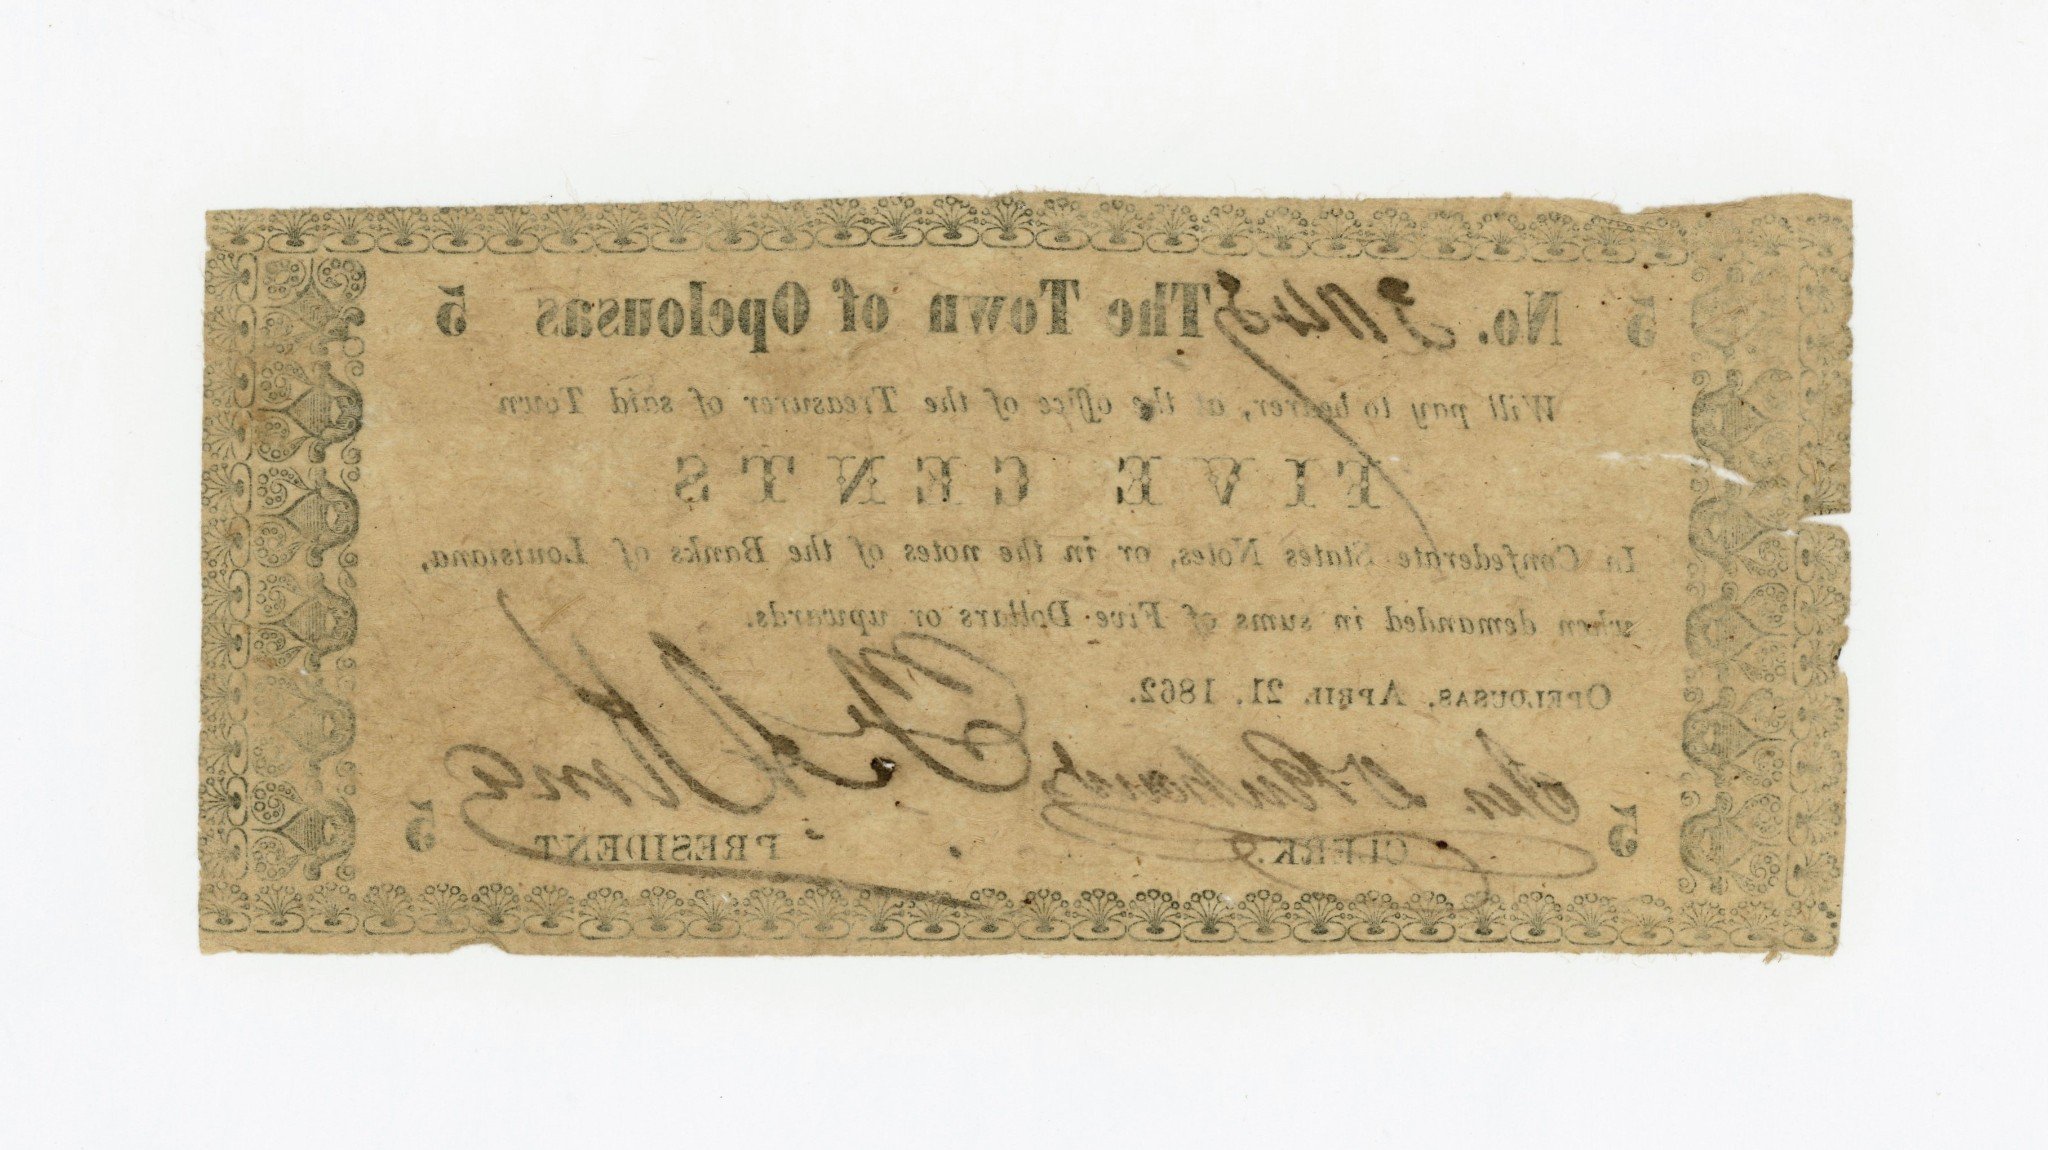 5 No. The Town of Opelousas 5
Will pay to bearer, at the office of the Treasurer of said Town
FIVE CENTS
In Confederate States Notes, or in the notes of the Banks of Louisiana,
when demanded in sums of Five Dollars or upwards.
OPELOUSAS, APRIL 21, 1862.
5 CLERK. PRESIDENT 5